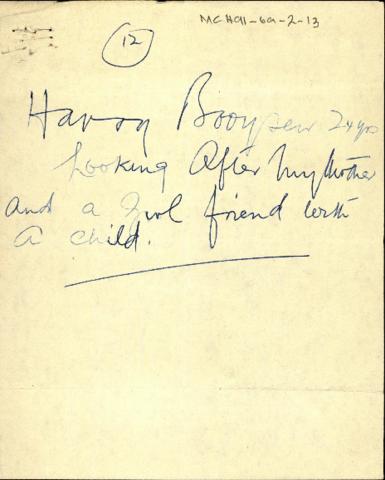 MCH91-69-2-13
12
Harry Booysen 24 yrs
Looking After My Mother
and a Girl friend with
A child.